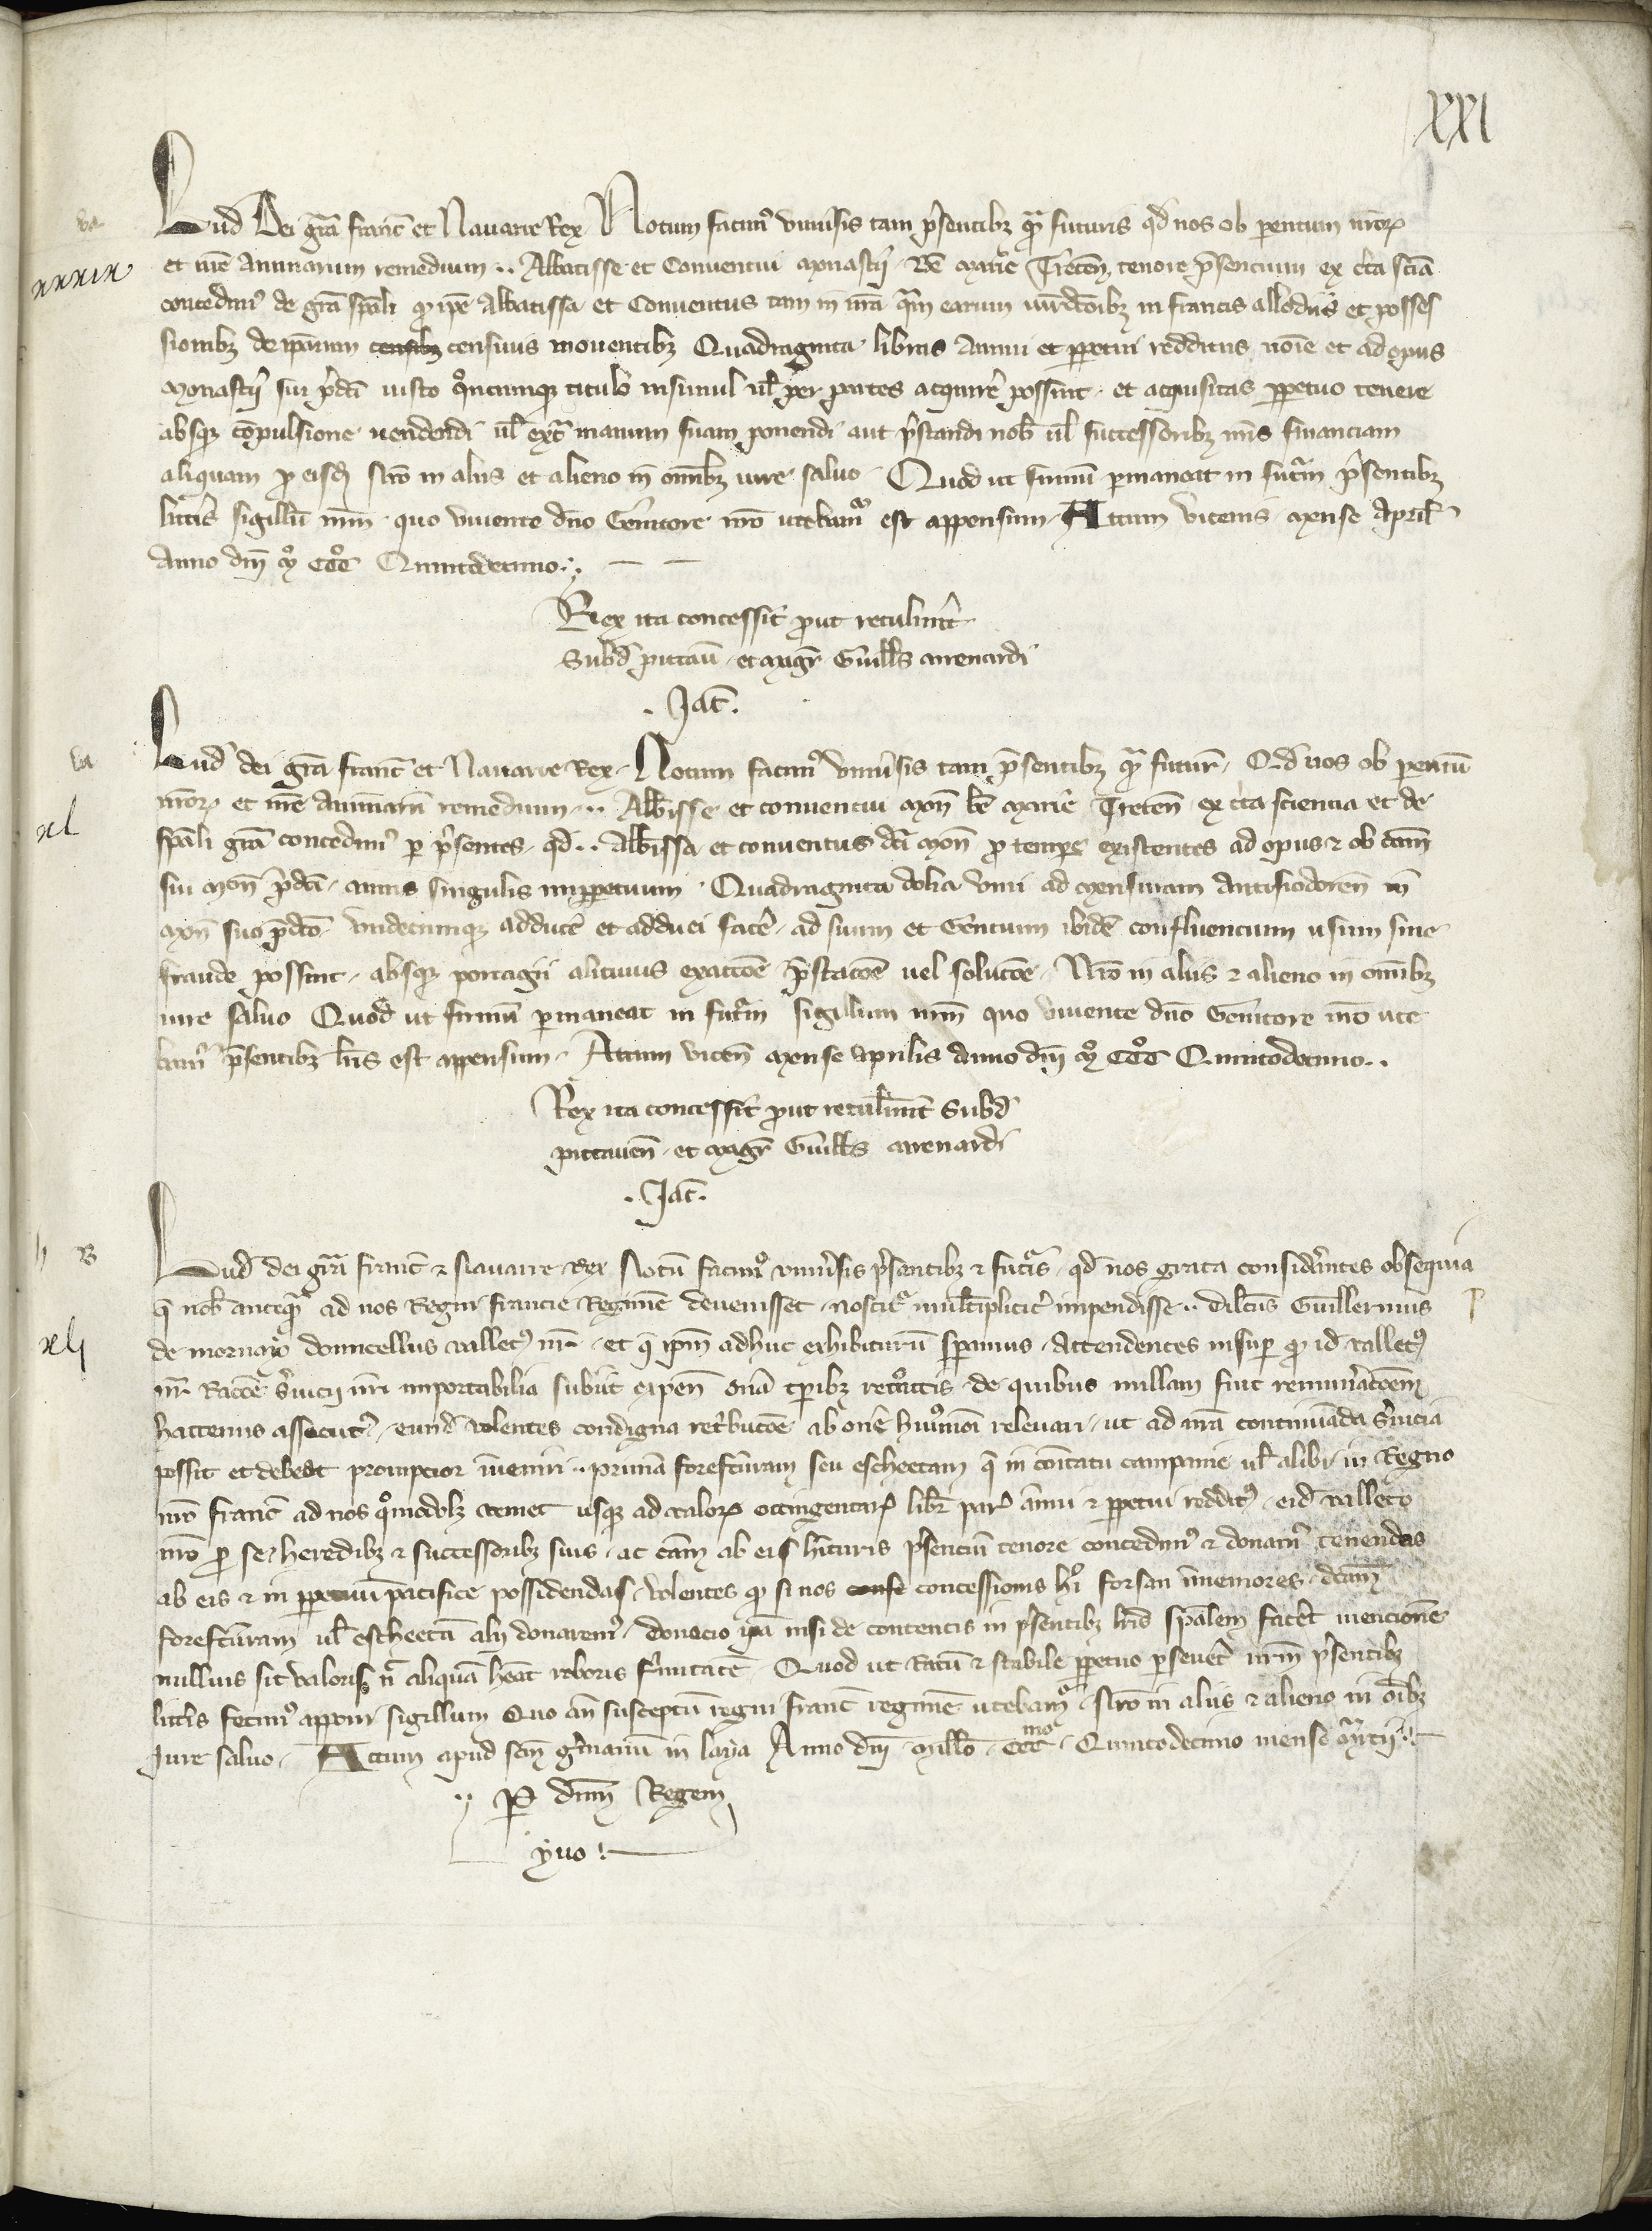 XXI
Lud Dei gra franc et Nauarre Rex Notum facim' vniuersis tam presentibz quam futuris qd nos ob parentum nrorum
xxxix
et nre Animarum remedium .. Abbatisse et Conuentui Monastii Be Marie Treten, tenore presencium ex certa scia
concedim' de gra spali quod ipse Abbatissa et Conuentus tam in nra quam earum iurisdcoibz in francis allodiis et posses
sionibz de ipsarum censibz censiuis mouentibz Quadraginta libras Annui et perpetui redditus noie et ad opus
Monastii sui predci iusto quocumque titulo insimul ul per partes acquirere possint et acquisitas perpetuo tenere
absque compulsione uendendi ul extra manum suam ponendi aut prestandi nob ul successoribz nris financiam
aliquam pro eisd nro in aliis et alieno in omibz iure saluo Quod ut firmu permaneat in futurum presentibz
litteris sigillu nrm quo viuente dno Genitore nro utebamur est appensum Actum Vicenis mense April
Anno dni Mo CCCo Quintodecimo
Rex ita concessit prout retulerunt
Subd pictau et magr Guills arrenardi
. Jac .
va
Lud dei gra franc et Nauarre Rex Notum facim' vniuersis tam presentibz quam futur Qd nos ob parentu
nrorum et nre Animaru remedium .. Abbisse et conuentui Mon be Marie Treten ex certa sciencia et de
xl
spali gra concedim' per presentes qd .. Abbissa et conuentus dci Mon pro tempore existentes ad opus et ob cam
sui Mon predci annis singulis imperpetuum Quadraginta dolia vini ad mensuram Antisiodoren in
Mon suo predco vndecumque adduce et adduci face ad suum et Gentium ibide confluencium usum sine
fraude possint absque portagii alicuius exaccoe prestacoe uel solucoe Nro in aliis et alieno in omibz
iure saluo Quod ut firmu permaneat in futurum sigillum nrm quo viuente dno Genitore nro ute
bamur presentibz lris est appensum Actum vicen mense aprilis Anno dni Mo CCCo Quintodecimo ..
Rex ita concessit prout retulerunt Subd
pictauen et magr Guills arrenardi
. Jac .
B
Lud dei gra franc et Nauarre Rex Notu facimo vniuersis presentibz et futuris qd nos grata considerantes obsequia
que nob antequam ad nos Regni francie Regimen deuenisset noscitur multipliciter impendisse .. dilcus Guillermus
de mornayo domicellus vallet' nr et que ipm adhuc exhibituru speramus Attendentes insuper quod id vallet'
xlj
nr Racoe seruicii nri importabilia subiit expen onera temporibz retroactis de quibus nullam fuit remuneracoem
hactenus assecut' eund volentes condigna retribucoe ab onere huiusmoi releuari ut ad nra continuanda seruicia
possit et debeat prompcior inueniri .. primam forefcuram seu escheetam que in comitatu campanie ul alibi in Regno
nro franc ad nos quomodolz veniet usque ad valorem octingentarum libr par annui et perpetui reddit' eid valleto
nro pro se heredibz et successoribz suis ac cam ab eis hituris presenciu tenore concedim' et donam' tenendas
ab eis et in perpetuu pacifice possidendas volentes quod si nos confe concessionis hui forsan immemores dcam
forefcuram ul escheeta alii donarem' donacio ipa nisi de contentis in presentibz lris spalem facet mencione
nullius sit valoris nec aliqua heat roboris firmitate Quod ut Ratu et stabile perpetuo perseueret nrm presentibz
litteris fecim' apponi sigillum Quo an susceptu regni franc regimen utebamur nro in aliis et alieno in oibz
Jure saluo Actum apud scm germanu in laya Anno dni Millo CCCmo Quintodecimo mense Marcii
.. Per dnm Regem
yuo